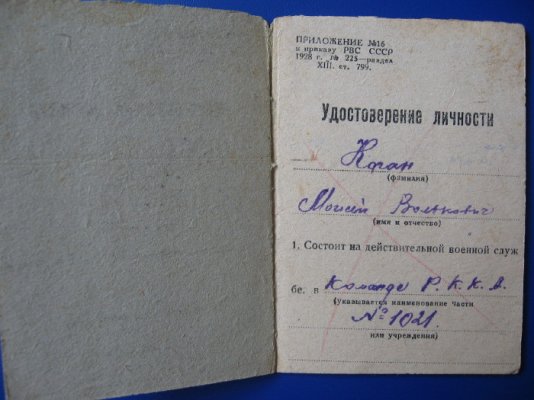 ПРИЛОЖЕНИЕ №16
к приказу РВС СССР
1928 г. № 225—раздел
XIII. ст. 799.
Удостоверение личности
Коган
(фамилия)
Моисей Волькович
(имя и отчество)
1. Состоит на действительной военной служ
бе. в Команде Р. К. К. А.
(указывается наименование части
№ 1021
или учреждения)